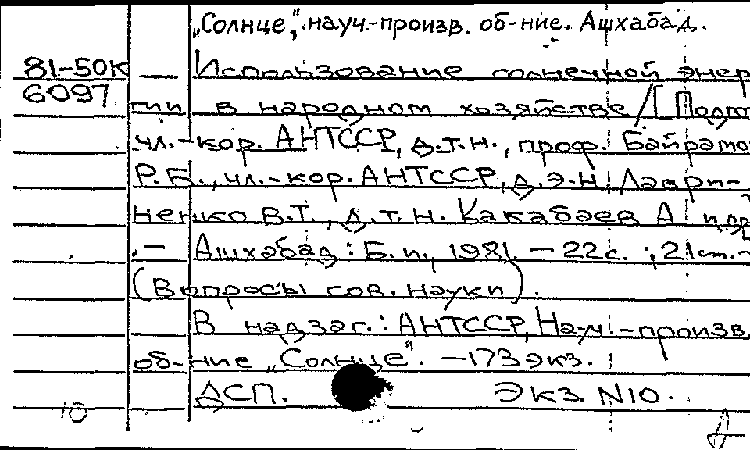 „Солнце", науч.-произв. об-ние. Ашхабад.
81-50К — Использование солнечной энер
6097 гии в народном хозяйстве / [Подго
чл.-кор. АНТССР, д.т.н., проф. Байрамо
Р.Б., чл.-кор. АНТССР, д.э.н. Лаври-
ненко В.Т., д.т.н. Какабаев А
.— Ашхабад: Б.и., 1981. — 22с.; 21см.-
(Вопросы сов. науки).
В надзаг.: АНТССР, Науч.-произв.
об-ние „Солнце". — 173 экз.
ДСП. Экз. N10.
10